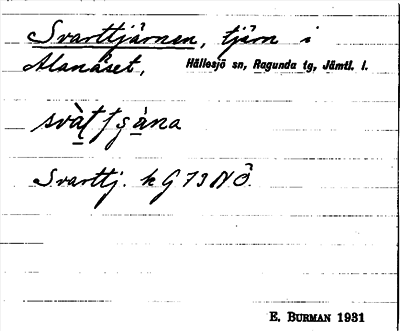 Svarttjärnen, tjärn i
Alanäset, Hällesjö sn, Ragunda tg, Jämtl. l.
Svarttj. k G 73 NÖ.
E. BURMAN 1931